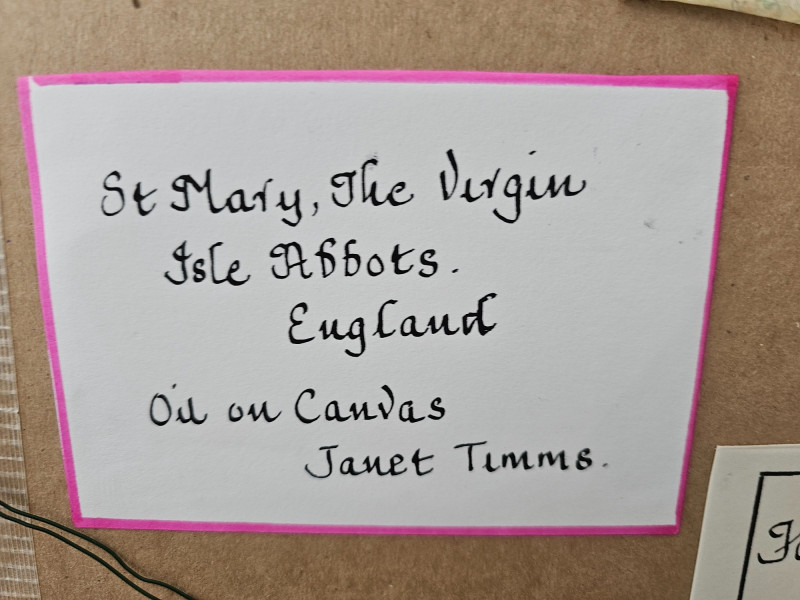 St Mary, The Virgin
Isle Abbots.
England
Oil on Canvas
Janet Timms.